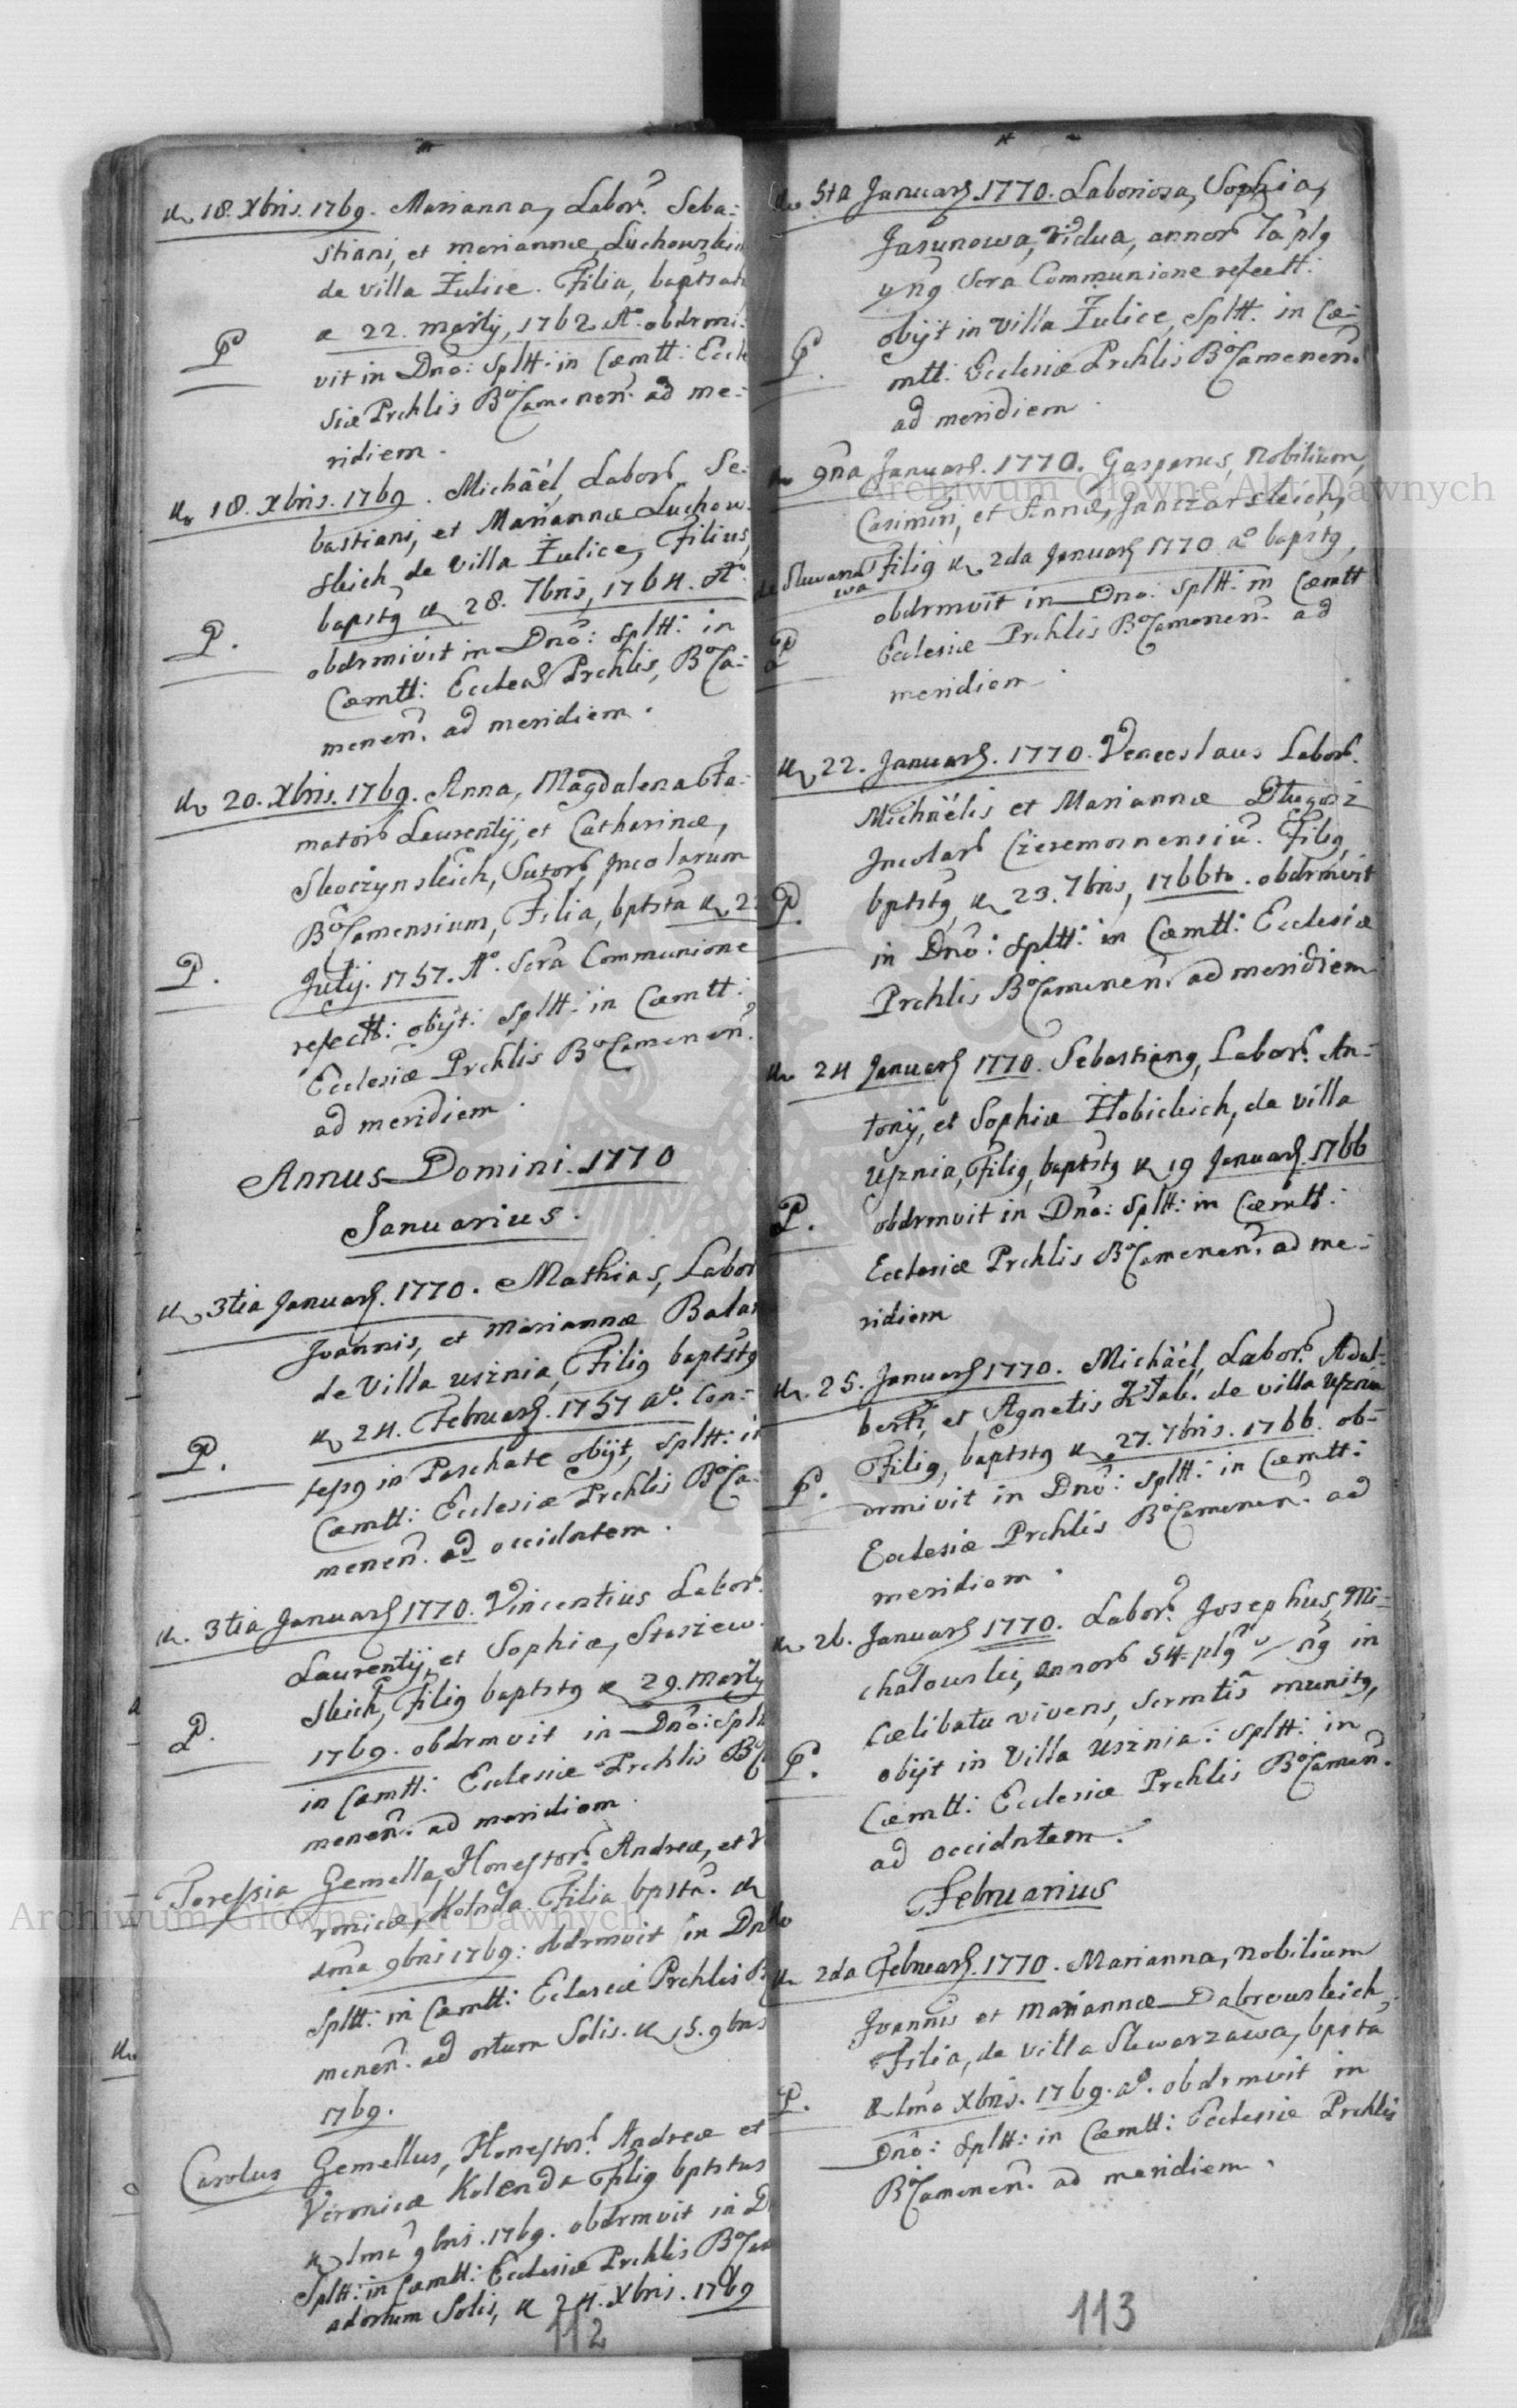 18. Xbris. 1769. Marianna, Labor. Seba-
stiani, et Mariannæ, Luchowskich
de villa Żulice. Filia, baptsata
a 22. Martij, 1762 Aō. obdrmi-
vit in Dnō: Splt: in Cæmtt: Eccle
siæ Prchlis Bocamenen. ad me-
ridiem.
P
18. Xbris. 1769. Michäel, Labor. Se-
bastiani, et Mariannæ Luchow-
skich de Villa Żulice, Filius,
bapstg 28. 7bris, 1764. Aō.
obdrmivit in Dnō: Splt: in
Cæmtt: Eccleæ Prchlis, Boca-
menen. ad meridiem.
P.
20. Xbris. 1769. Anna, Magdalena
Laurentij, et Catharinæ,
Skoczynskich, Sutor, Incolarum
Bocamensium, Filia, bptsta 22
Julij. 1757. Aō. Scra Communione
refectt: obijt: Splt: in Cæmtt:
Ecclesiæ Prchlis Bocamenen.
ad meridiem.
P.
Annus Domini. 1770
Januarius.
3tia Januar. 1770. Mathias, Labor
Joannis, et Mariannæ
de Villa Usznia, Filig baptstg
24. Februar. 1757 aō. Con-
fesg in Paschate obijt, Spltt: in
Cæmtt: Ecclesiæ Prchlis Boca-
menen. ad occidntem.
P.
3tia Januar 1770. Vincentius Labor.
Laurentij, et Sophiæ, Staszew-
skich, Filig baptstg 29. Martij
1769. obdrmvit in Dnō: Splt
in Cæmtt: Ecclesiæ Prchlis Boc
menen. ad meridiem.
P.
Teressia Gemella, Honestor. Andreæ, et V
ronicæ, Kolnda Filia bpsta.
9bris 1769: obdrmvit in Dno
Spltt: in Cæmtt: Eclesiæ Prchlis B
menen. ad ortum Solis. 15. 9bris
1769.
Carolus Gemellus, Honestor. Andreæ et
Veronicæ Kolenda Filig bptstus
1ma 9bris. 1769. obdrmvit in D
Spltt: in Cæmtt: Ecclesiæ Prchlis Bocam
ad ortum Solis, 24. Xbris. 1769
112
5ta Januar 1770. Laboriosa, Sophia,
Jasunowa, Vidua, annor 70 plg
Scra Communione refectt:
obijt in villa Żulice, Spltt. in Cæ-
mtt: Ecclesiæ Prchlis Bocamenen.
ad meridiem.
P.
9na Januar. 1770. Gasparus, Nobilium,
Casimiri, et Annæ, Janczarskich,
Filig 2da Januar 1770 aō bapstg,
obdrmvit in Dno: Spltt: in Cæmtt
Ecclesiæ Prchlis Bocamenen. ad
meridiem.
P
22. Januar. 1770. Venceslaus Labor.
Michäelis et Mariannæ Długosz
Incolar Czeremosnensiu. Filig,
bptstg, 23. 7bris, 1766to. obdrmvit
in Dnō: Spltt: in Cæmtt: Ecclesiæ
Prchlis Bocamenen. ad meridiem
P.
24 Januar 1770. Sebastiang, Labor. An-
tonij, et Sophiæ Złobickich, de villa
Usznia, Filig, baptstg 19 Januar. 1766
obdrmvit in Dnō: Spltt: in Cæmtt:
Ecclesiæ Prchlis Bocamenen. ad me-
ridiem
P.
25. Januar 1770. Michäel, Labor. Adal-
berti, et Agnetis de villa Usznia
Filig, baptstg 27. 7bris. 1766. ob-
drmivit in Dnō: Spltt: in Cæmtt:
Ecclesiæ Prchlis Bocamenen. ad
meridiem.
P.
26. Januar 1770. Labor. Josephus, Mi-
chalowski, annor 54 plg in
Cælibatu vivens, Scrmtis munitg,
obijt in Villa Usznia: Spltt: in
Cæmtt: Ecclesiæ Prchlis Bocamen.
ad occidntem.
P.
Februarius
2da Februar. 1770. Marianna, Nobilium
Joannis et Mariannæ Dabrowskich
Filia, de villa Skwarzawa, bpsta
1ma Xbris. 1769. aō. obdrmvit in
Dnō: Spltt: in Cæmtt: Ecclesiæ Prchlis
Bocamenen. ad meridiem.
P.
113
Archiwum Główne Akt Dawnych
Archiwum Główne Akt Dawnych